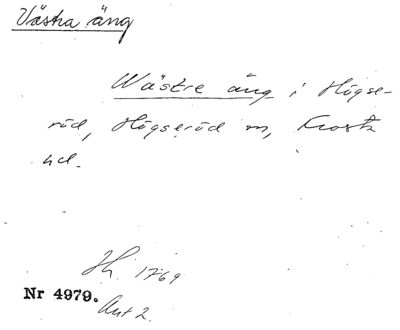 Västra äng
Wästre äng i Högse-
röd, Högseröd sn, Frosta
hd.
Jh. 1769
Nr 4979.
Akt 2.